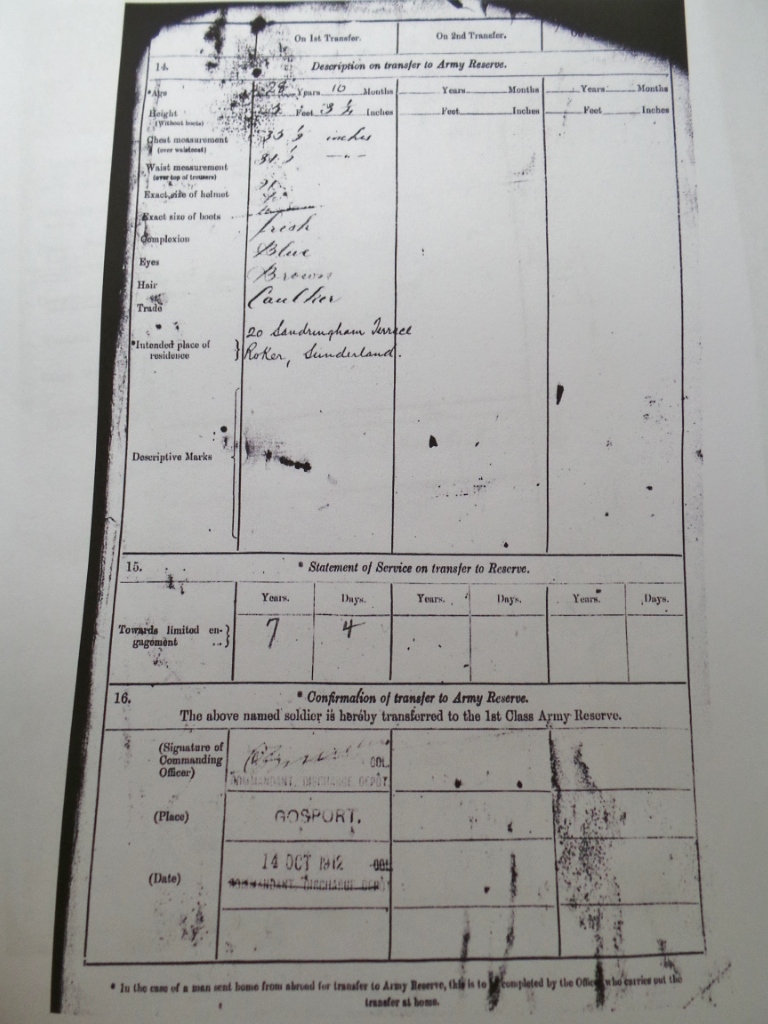 On 1st Transfer. On 2nd Transfer.
14. Description on transfer to Army Reserve.
*Age 28 Years 10 Months Years Months Years Months
Height 5 Feet 3 ½ Inches Feet Inches Feet Inches
(Without boots)
Chest measurement 33 ½ inches
(over waistcoat)
Waist measurement 31 ½ —„—
(over top of trousers)
Exact size of helmet 21
Exact size of boots
Complexion Fresh
Eyes Blue
Hair Brown
Trade Caulker
*Intended place of residence } 20 Sandringham Terrace
Roker, Sunderland.
Descriptive Marks
15. * Statement of Service on transfer to Reserve.
Years. Days. Years. Days. Years. Days.
Towards limited en-
gagement .. } 7 4
16. * Confirmation of transfer to Army Reserve.
The above named soldier is hereby transferred to the 1st Class Army Reserve.
(Signature of
Commanding
Officer) COL.
COMMANDANT, DISCHARGE DEPÔT.
(Place) GOSPORT.
(Date) 14 OCT 1912 COL
COMMANDANT, DISCHARGE DEPÔT
* In the case of a man sent home from abroad for transfer to Army Reserve, this is to be completed by the Officer who carries out the
transfer at home.